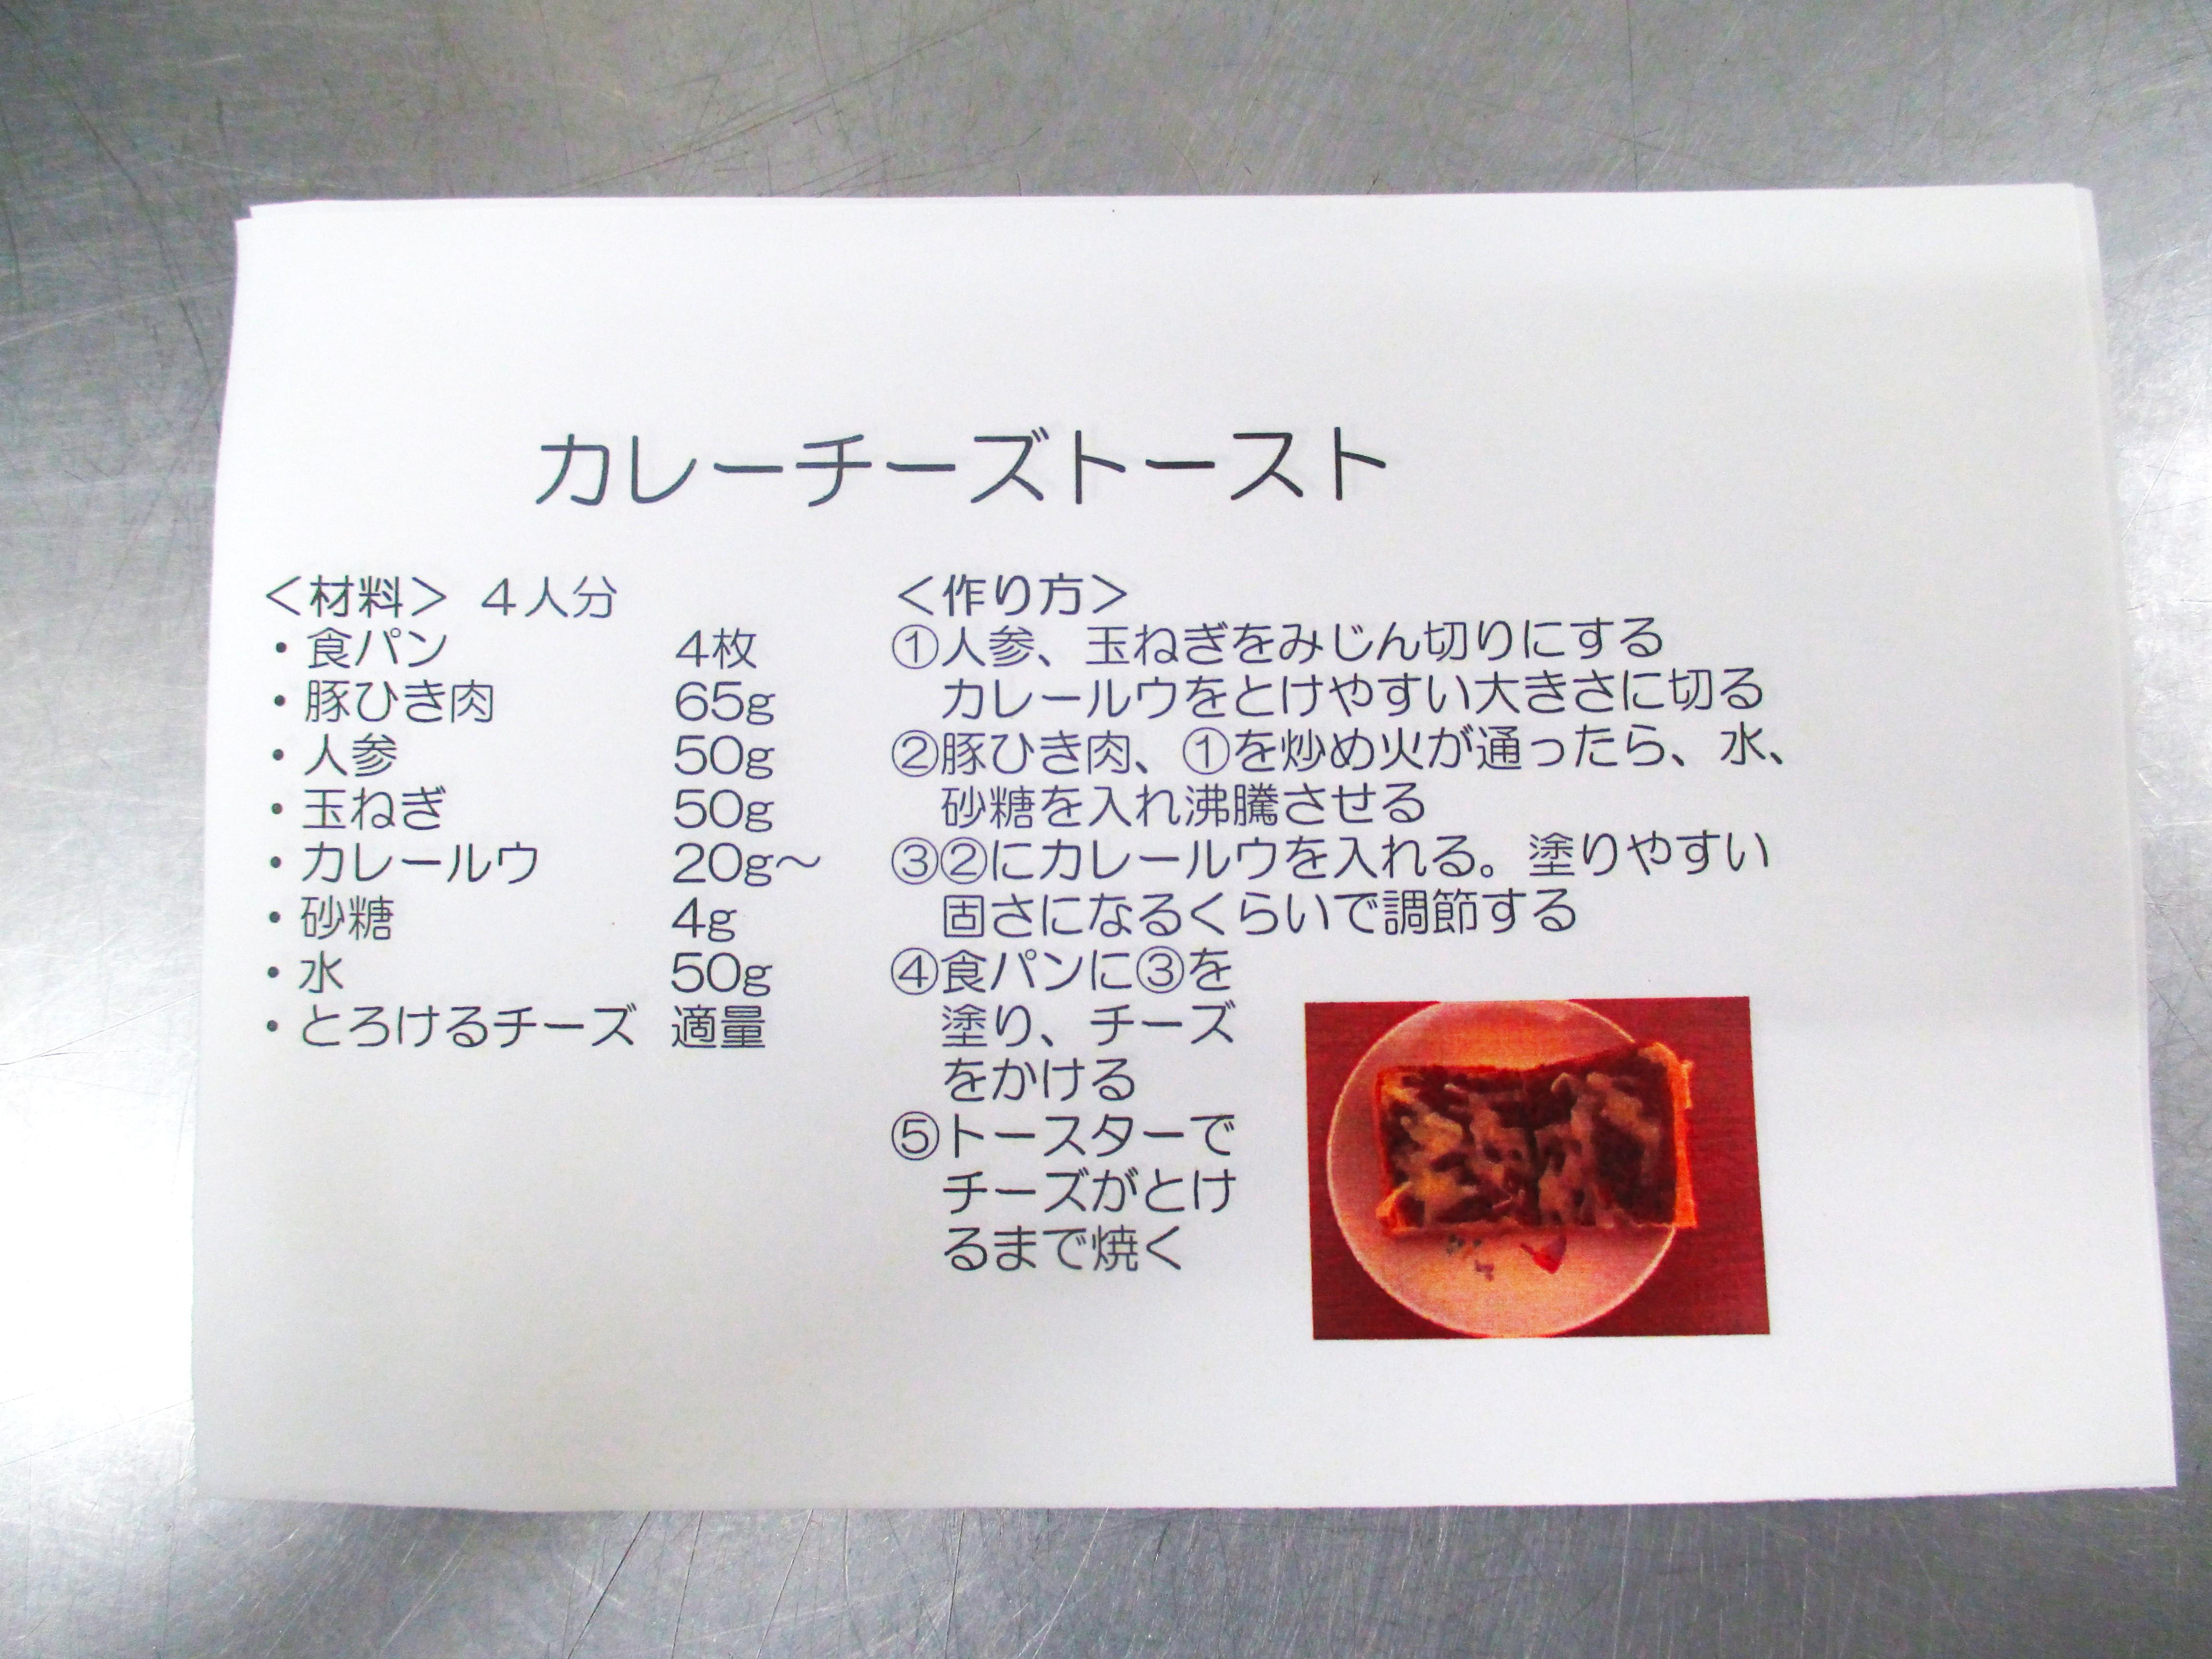 カレーチーズトースト
＜材料＞ ４人分
・食パン 4枚
・豚ひき肉 65g
・人参 50g
・玉ねぎ 50g
・カレールウ 20g～
・砂糖 4g
・水 50g
・とろけるチーズ 適量
＜作り方＞
①人参、玉ねぎをみじん切りにする
カレールウをとけやすい大きさに切る
②豚ひき肉、①を炒め火が通ったら、水、
砂糖を入れ沸騰させる
③②にカレールウを入れる。塗りやすい
固さになるくらいで調節する
④食パンに③を
塗り、チーズ
をかける
⑤トースターで
チーズがとけ
るまで焼く